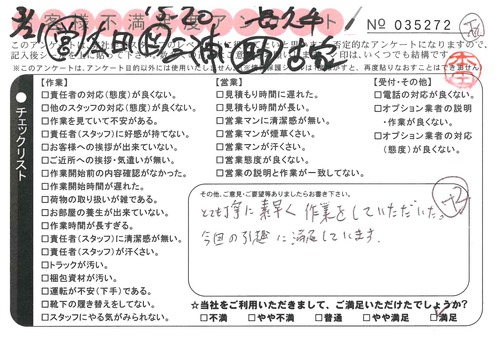 お客様不満足度アンケート
No 035272
【作業】
□責任者の対応(態度)が良くない。
□他のスタッフの対応(態度)が良くない。
□作業を見ていて不安がある。
□責任者(スタッフ)に好感が持てない。
□お客様への挨拶が出来ていない。
□ご近所への挨拶・気遣いが無い。
□作業開始前の内容確認がなかった。
□作業開始時間が遅れた。
□荷物の取り扱いが雑である。
□お部屋の養生が出来ていない。
□作業時間が長すぎる。
□責任者(スタッフ)に清潔感が無い。
□責任者(スタッフ)が汗くさい。
□トラックが汚い。
□梱包資材が汚い。
□運転が不安(下手)である。
□靴下の履き替えをしてない。
□スタッフにやる気がみられない。
【営業】
□見積もり時間に遅れた。
□見積もり時間が長い。
□営業マンに清潔感が無い。
□営業マンが煙草くさい。
□営業マンが汗くさい。
□営業態度が良くない。
□営業の説明と作業が一致してない。
【受付・その他】
□電話の対応が良くない。
□オプション業者の説明
・作業が良くない。
□オプション業者の対応
(態度)が良くない。
チェックリスト
その他、ご意見・ご要望等ありましたらお書き下さい。
とても丁寧に素早く作業をしていただいた。
今回の引越に満足しています。
☆当社をご利用いただきまして、ご満足いただけたでしょうか?
□不満 □やや不満 □普通 □やや満足 □満足